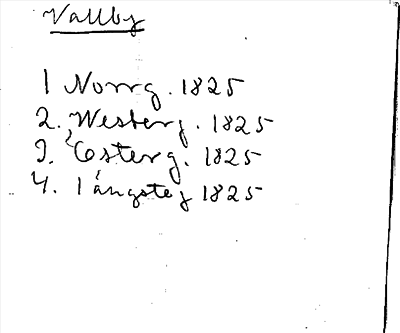 Vallby
1 Norrg. 1825
2. Westerg. 1825
3. Österg. 1825
4. Långsteg 1825